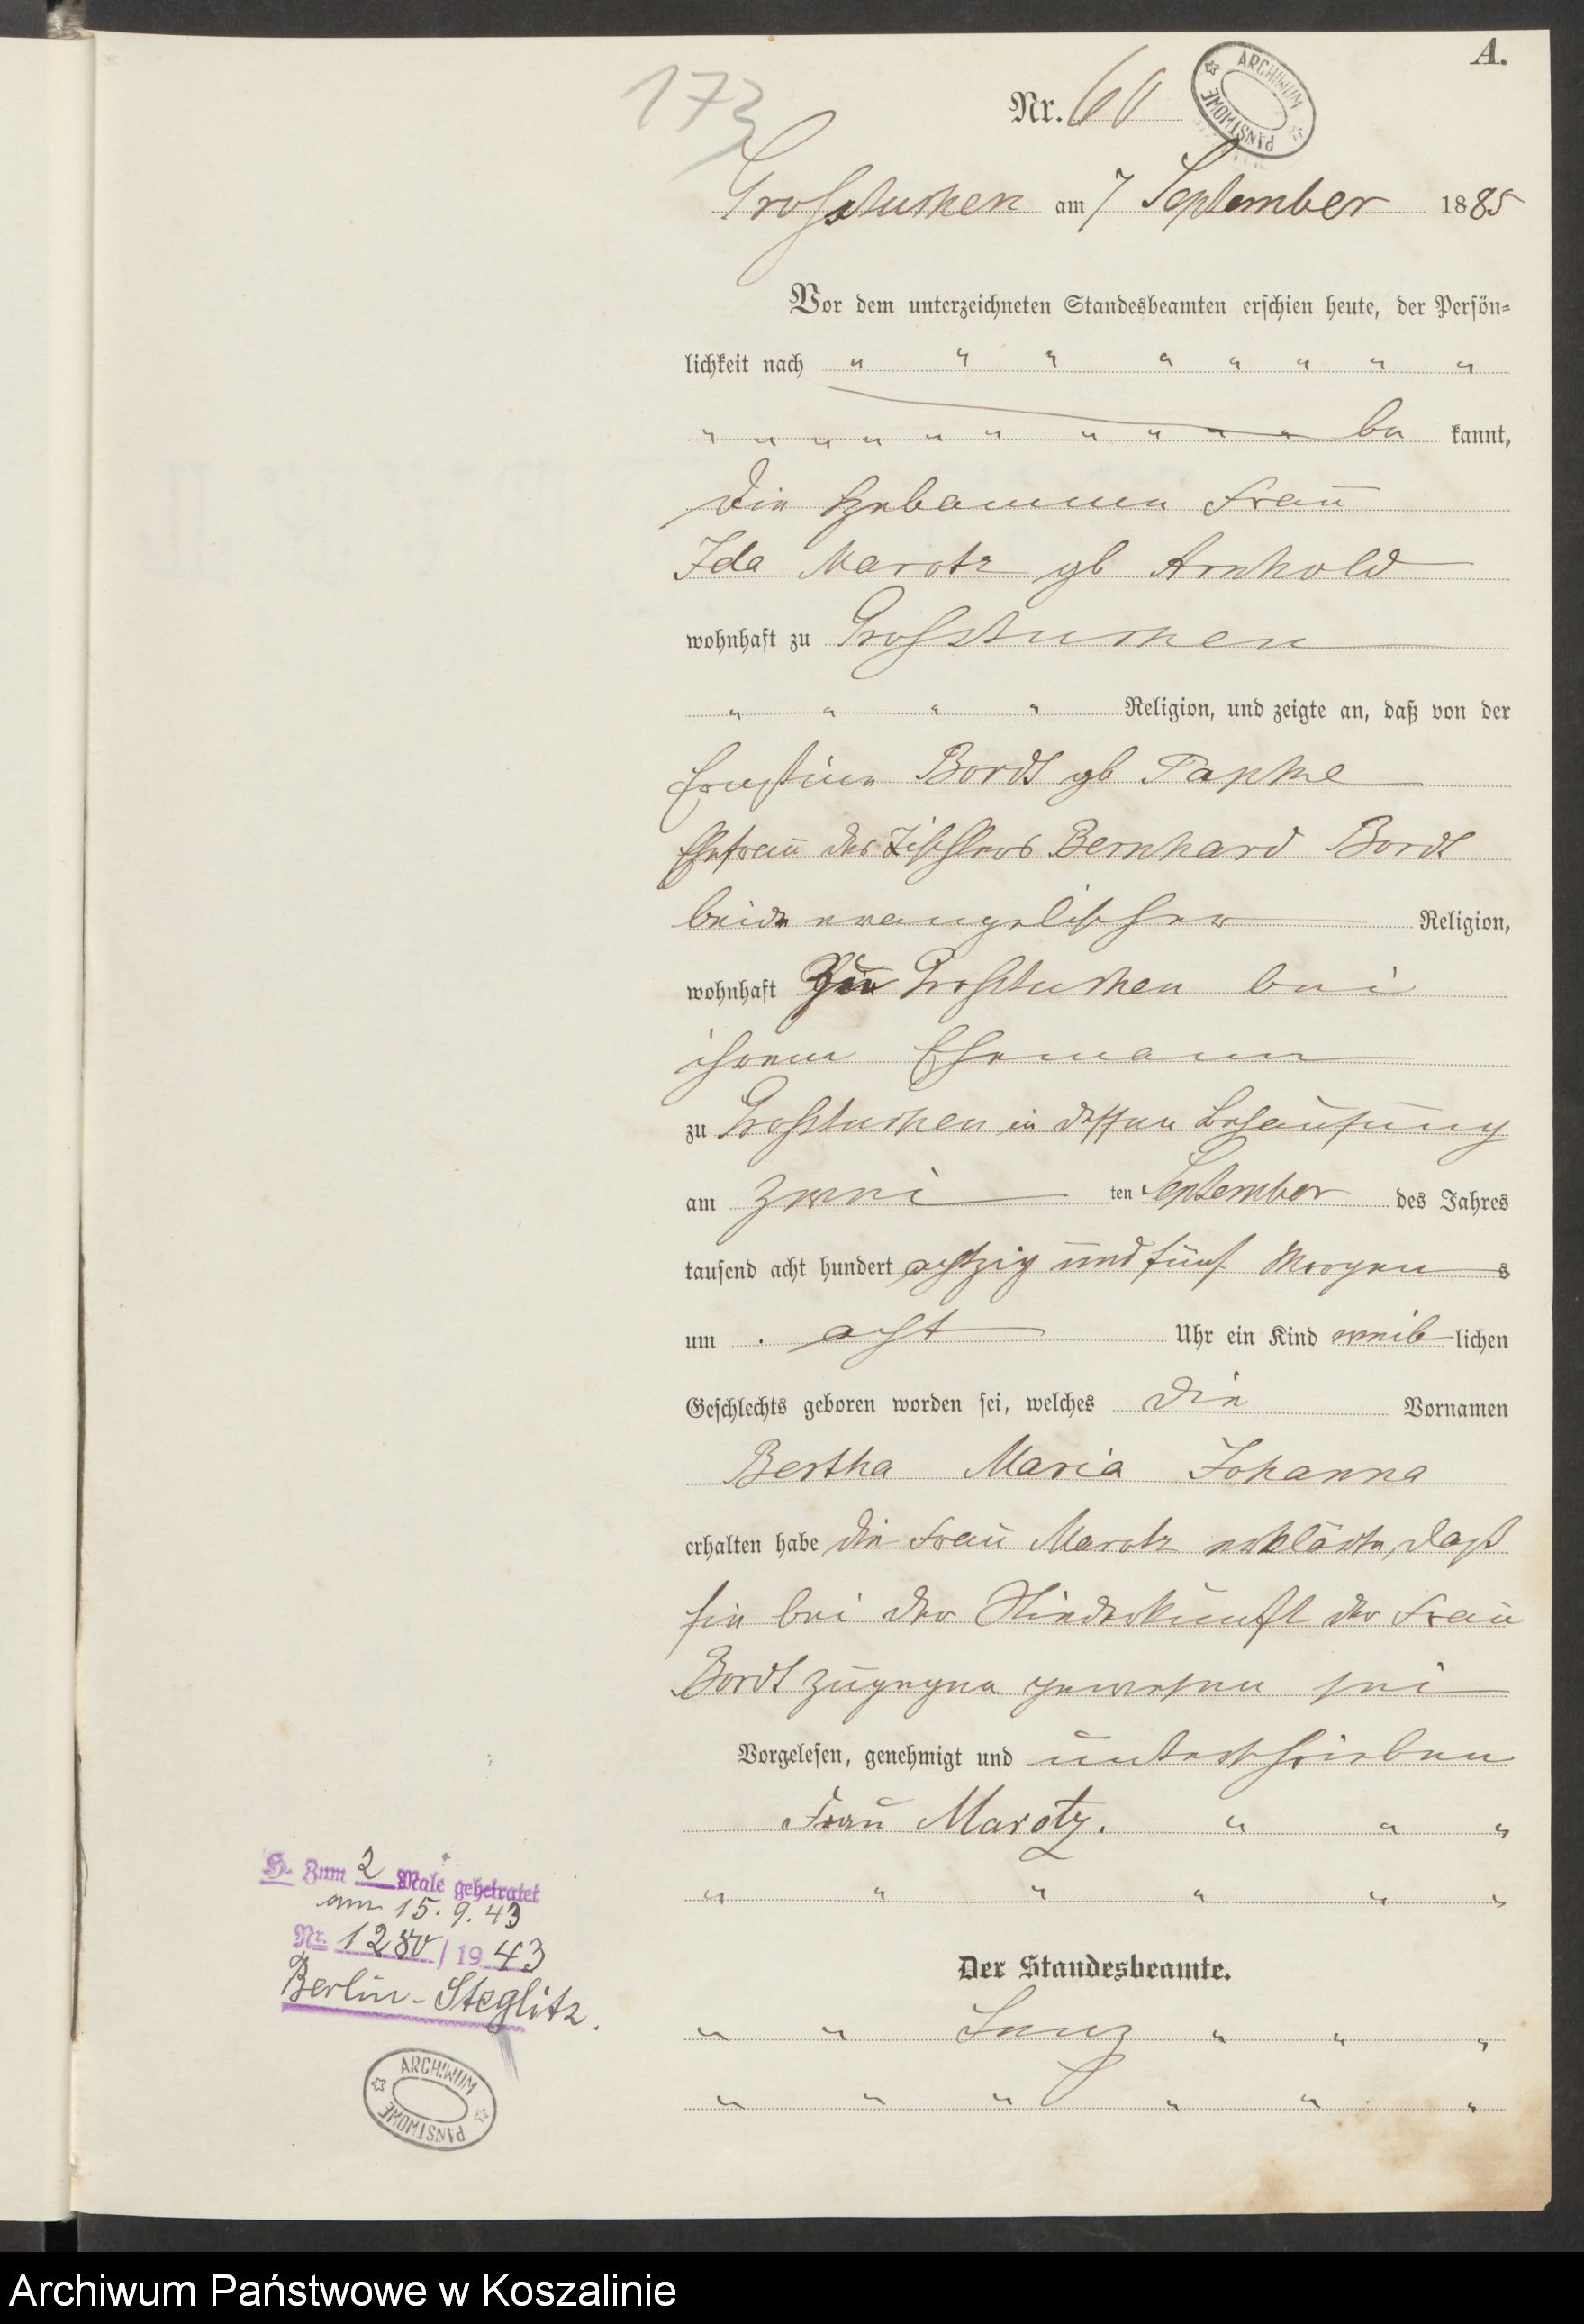 A.
173
Nr. 60
ARCHIWUM PAŃSTWOWE
Grosstuchen am 7 September 1885
Vor dem unterzeichneten Standesbeamten erschien heute, der Persön=
lichkeit nach " " " " " " " "
" " " " " " " " " " be kannt,
die Hebamme Frau
Ida Marotz gb Arnhold
wohnhaft zu Grosstuchen
" " " " Religion, und zeigte an, daß von der
Ernstine Bordt gb Papke
Ehefrau des Tischlers Bernhard Bordt
beide evangelischer Religion,
wohnhaft zu Grosstuchen bei
ihrem Ehemann
zu Grosstuchen in dessen Behausung
am zwei ten September des Jahres
tausend acht hundert achtzig und fünf Morgens
um acht Uhr ein Kind weib lichen
Geschlechts geboren worden sei, welches die Vornamen
Bertha Maria Johanna
erhalten habe die Frau Marotz erklärte, daß
sie bei der Niederkunft der Frau
Bordt zugegen gewesen sei
Vorgelesen, genehmigt und unterschrieben
Frau Marotz. " " "
" " " " " "
Der Standesbeamte.
" " " " "
" " " " " "
H. Zum 2 Male geheiratet
am 15. 9. 43
Nr. 1280/1943
Berlin-Steglitz.
ARCHIWUM PAŃSTWOWE
Archiwum Państwowe w Koszalinie